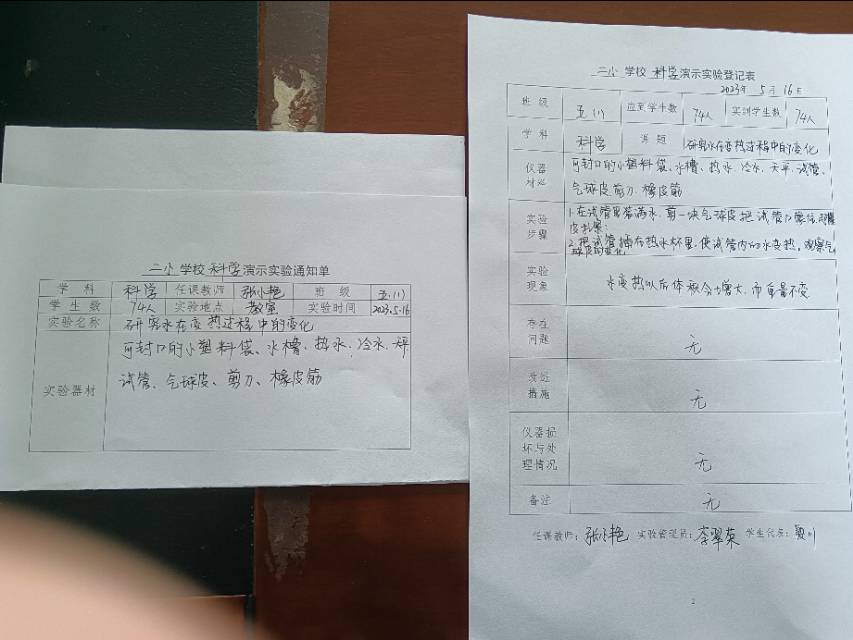 二小 学校 科学 演示实验通知单
学 科 科学 任课教师 张小艳 班 级 五(1)
学 生 数 74人 实验地点 教室 实验时间 2023.5.16
实验名称 研究水在变热过程中的变化
可封口的小塑料袋、水槽、热水、冷水、天平
实验器材 试管、气球皮、剪刀、橡皮筋
二小 学校 科学 演示实验登记表
2023年 5月 16日
班 级 五(1) 应至学生数 74人 实到学生数 74人
学 科 科学 课 题 研究水在变热过程中的变化
仪器 可封口的小塑料袋、水槽、热水、冷水、天平、试管、
气球皮、剪刀、橡皮筋
实验 1.在试管里装满水,剪一块气球皮把试管口蒙住,用橡
步骤 皮扎紧;
2.把试管插在热水杯里,使试管内的水变热,观察气
球皮的变化
实验
现象 水变热以后体积会增大,而重量不变
存在
问题 无
改进
措施 无
仪器损
坏与处
理情况 无
备注 无
任课教师:张小艳 实验管理员:李翠英 学生代表:
2